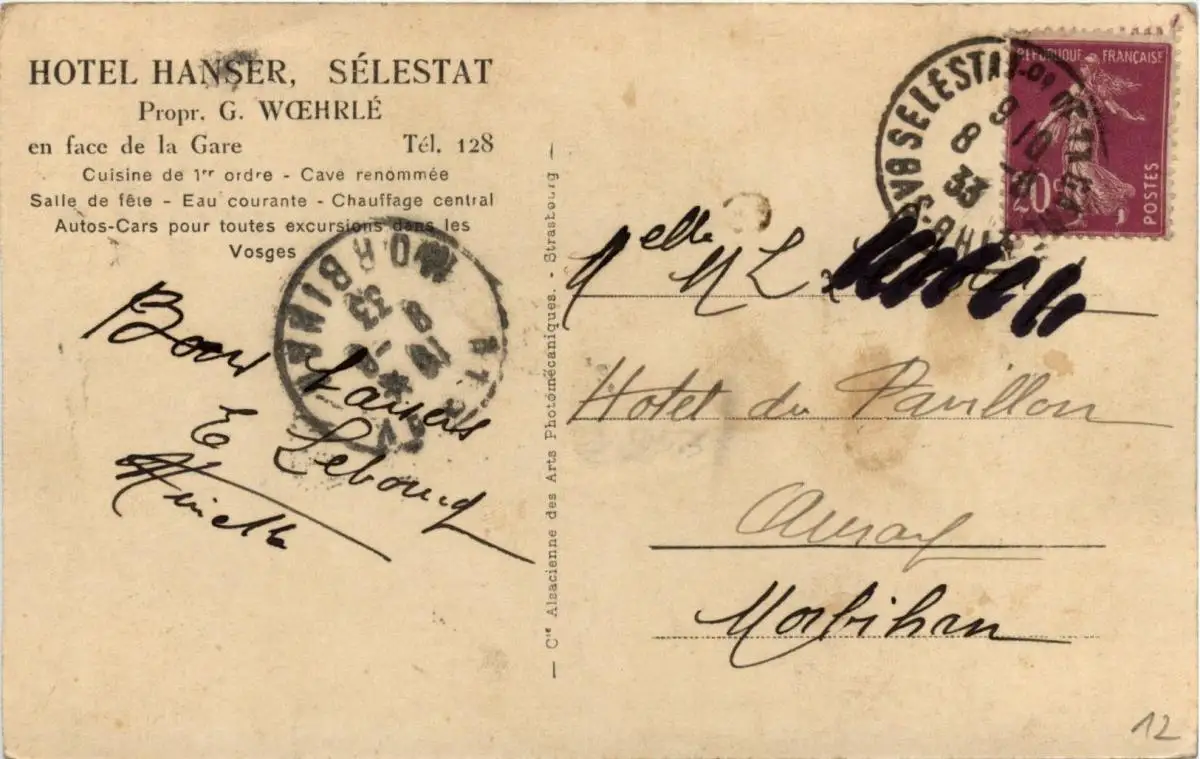 HOTEL HANSER, SÉLESTAT
Propr. G. WŒHRLÉ
en face de la Gare Tél. 128
Cuisine de 1er ordre - Cave renommée
Salle de fête - Eau courante - Chauffage central
Autos-Cars pour toutes excursions dans les
Vosges
Bons
E Lebourg
MORBIHAN
33
— Cie Alsacienne des Arts Photomécaniques. - Strasbourg —
SELESTAT
BAS-RHIN
9 10
8 -8
33
RÉPUBLIQUE FRANÇAISE
20c
POSTES
Melle M L
Hotel du Pavillon
Auray
Morbihan
12